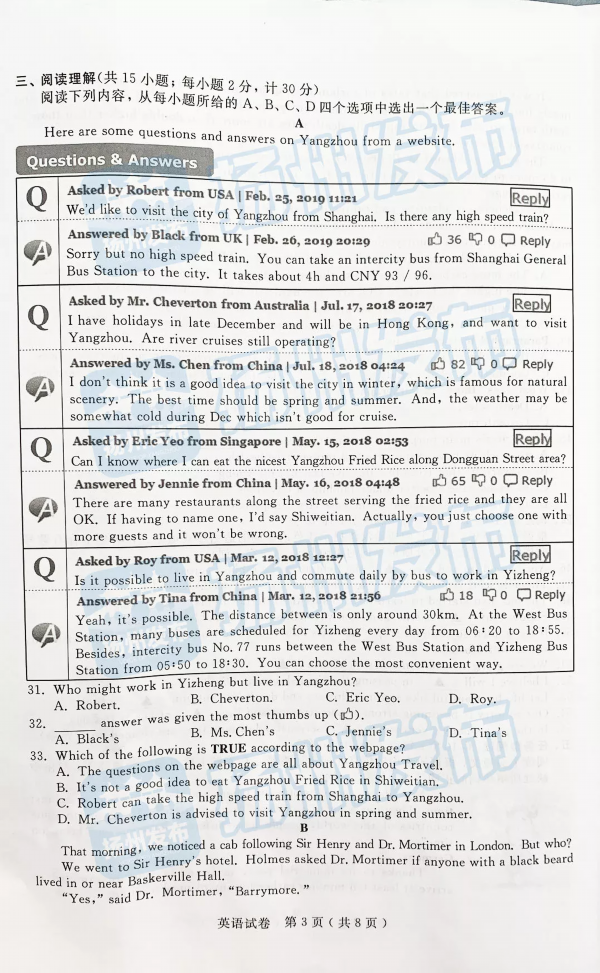 三、阅读理解(共 15 小题; 每小题 2 分, 计 30 分)
阅读下列内容, 从每小题所给的 A、B、C、D 四个选项中选出一个最佳答案。
A
Here are some questions and answers on Yangzhou from a website.
Questions & Answers
Q
Asked by Robert from USA | Feb. 25, 2019 11:21
Reply
We'd like to visit the city of Yangzhou from Shanghai. Is there any high speed train?
A
Answered by Black from UK | Feb. 26, 2019 20:29
36 0 Reply
Sorry but no high speed train. You can take an intercity bus from Shanghai General
Bus Station to the city. It takes about 4h and CNY 93 / 96.
Q
Asked by Mr. Cheverton from Australia | Jul. 17, 2018 20:27
Reply
I have holidays in late December and will be in Hong Kong, and want to visit
Yangzhou. Are river cruises still operating?
A
Answered by Ms. Chen from China | Jul. 18, 2018 04:24
82 0 Reply
I don't think it is a good idea to visit the city in winter, which is famous for natural
scenery. The best time should be spring and summer. And, the weather may be
somewhat cold during Dec which isn't good for cruise.
Q
Asked by Eric Yeo from Singapore | May. 15, 2018 02:53
Reply
Can I know where I can eat the nicest Yangzhou Fried Rice along Dongguan Street area?
A
Answered by Jennie from China | May. 16, 2018 04:48
65 0 Reply
There are many restaurants along the street serving the fried rice and they are all
OK. If having to name one, I'd say Shiweitian. Actually, you just choose one with
more guests and it won't be wrong.
Q
Asked by Roy from USA | Mar. 12, 2018 12:27
Reply
Is it possible to live in Yangzhou and commute daily by bus to work in Yizheng?
A
Answered by Tina from China | Mar. 12, 2018 21:56
18 0 Reply
Yeah, it's possible. The distance between is only around 30km. At the West Bus
Station, many buses are scheduled for Yizheng every day from 06:20 to 18:55.
Besides, intercity bus No. 77 runs between the West Bus Station and Yizheng Bus
Station from 05:50 to 18:30. You can choose the most convenient way.
31. Who might work in Yizheng but live in Yangzhou?
A. Robert. B. Cheverton. C. Eric Yeo. D. Roy.
32. ______ answer was given the most thumbs up ( ).
A. Black's B. Ms. Chen's C. Jennie's D. Tina's
33. Which of the following is TRUE according to the webpage?
A. The questions on the webpage are all about Yangzhou Travel.
B. It's not a good idea to eat Yangzhou Fried Rice in Shiweitian.
C. Robert can take the high speed train from Shanghai to Yangzhou.
D. Mr. Cheverton is advised to visit Yangzhou in spring and summer.
B
That morning, we noticed a cab following Sir Henry and Dr. Mortimer in London. But who?
We went to Sir Henry's hotel. Holmes asked Dr. Mortimer if anyone with a black beard
lived in or near Baskerville Hall.
"Yes," said Dr. Mortimer, "Barrymore."
英语试卷 第 3 页 ( 共 8 页 )
扬州发布
扬州发布
扬州发布
扬州发布